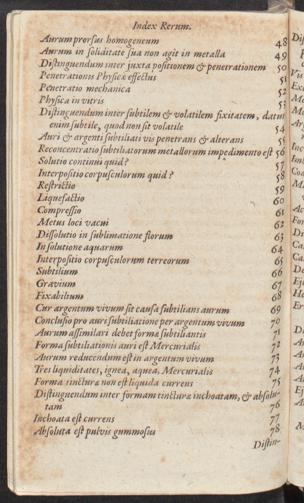 Index Rerum.
Aurum prorsus homogeneum 48
Aurum in soliditate sua non agit in metalla 49
Distinguendum inter juxta positionem & penetrationem 50
Penetrationis Physicæ effectus 51
Penetratio mechanica 52
Physica in vitris 53
Distinguendum inter subtilem & volatilem fixitatem, datur
enim subtile, quod non sit volatile 54
Auri & argenti subtiliati vis penetrans & alterans 55
Reconcentratio subtiliatorum metallorum impedimento est 56
Solutio continui quid? 57
Interpositio corpusculorum quid? 58
Restrictio 59
Liquefactio 60
Compressio 61
Metus loci vacui 62
Dissolutio in sublimatione florum 63
In solutione aquarum 64
Interpositio corpusculorum terreorum 65
Subtilium 66
Gravium 67
Fixabilium 68
Cur argentum vivum sit causa subtilians aurum 69
Conclusio pro auri subtiliatione per argentum vivum 70
Aurum assimilari debet formæ subtiliantis 71
Forma subtiliationis auri est Mercurialis 72
Aurum reducendum est in argentum vivum 73
Tres liquiditates, ignea, aquea, Mercurialis 74
Forma tincturæ non est liquida currens 75
Distinguendum inter formam tincturæ inchoatam, & absolu-
tam 76
Inchoata est currens 77
Absoluta est pulvis gummosus 78
Distin-